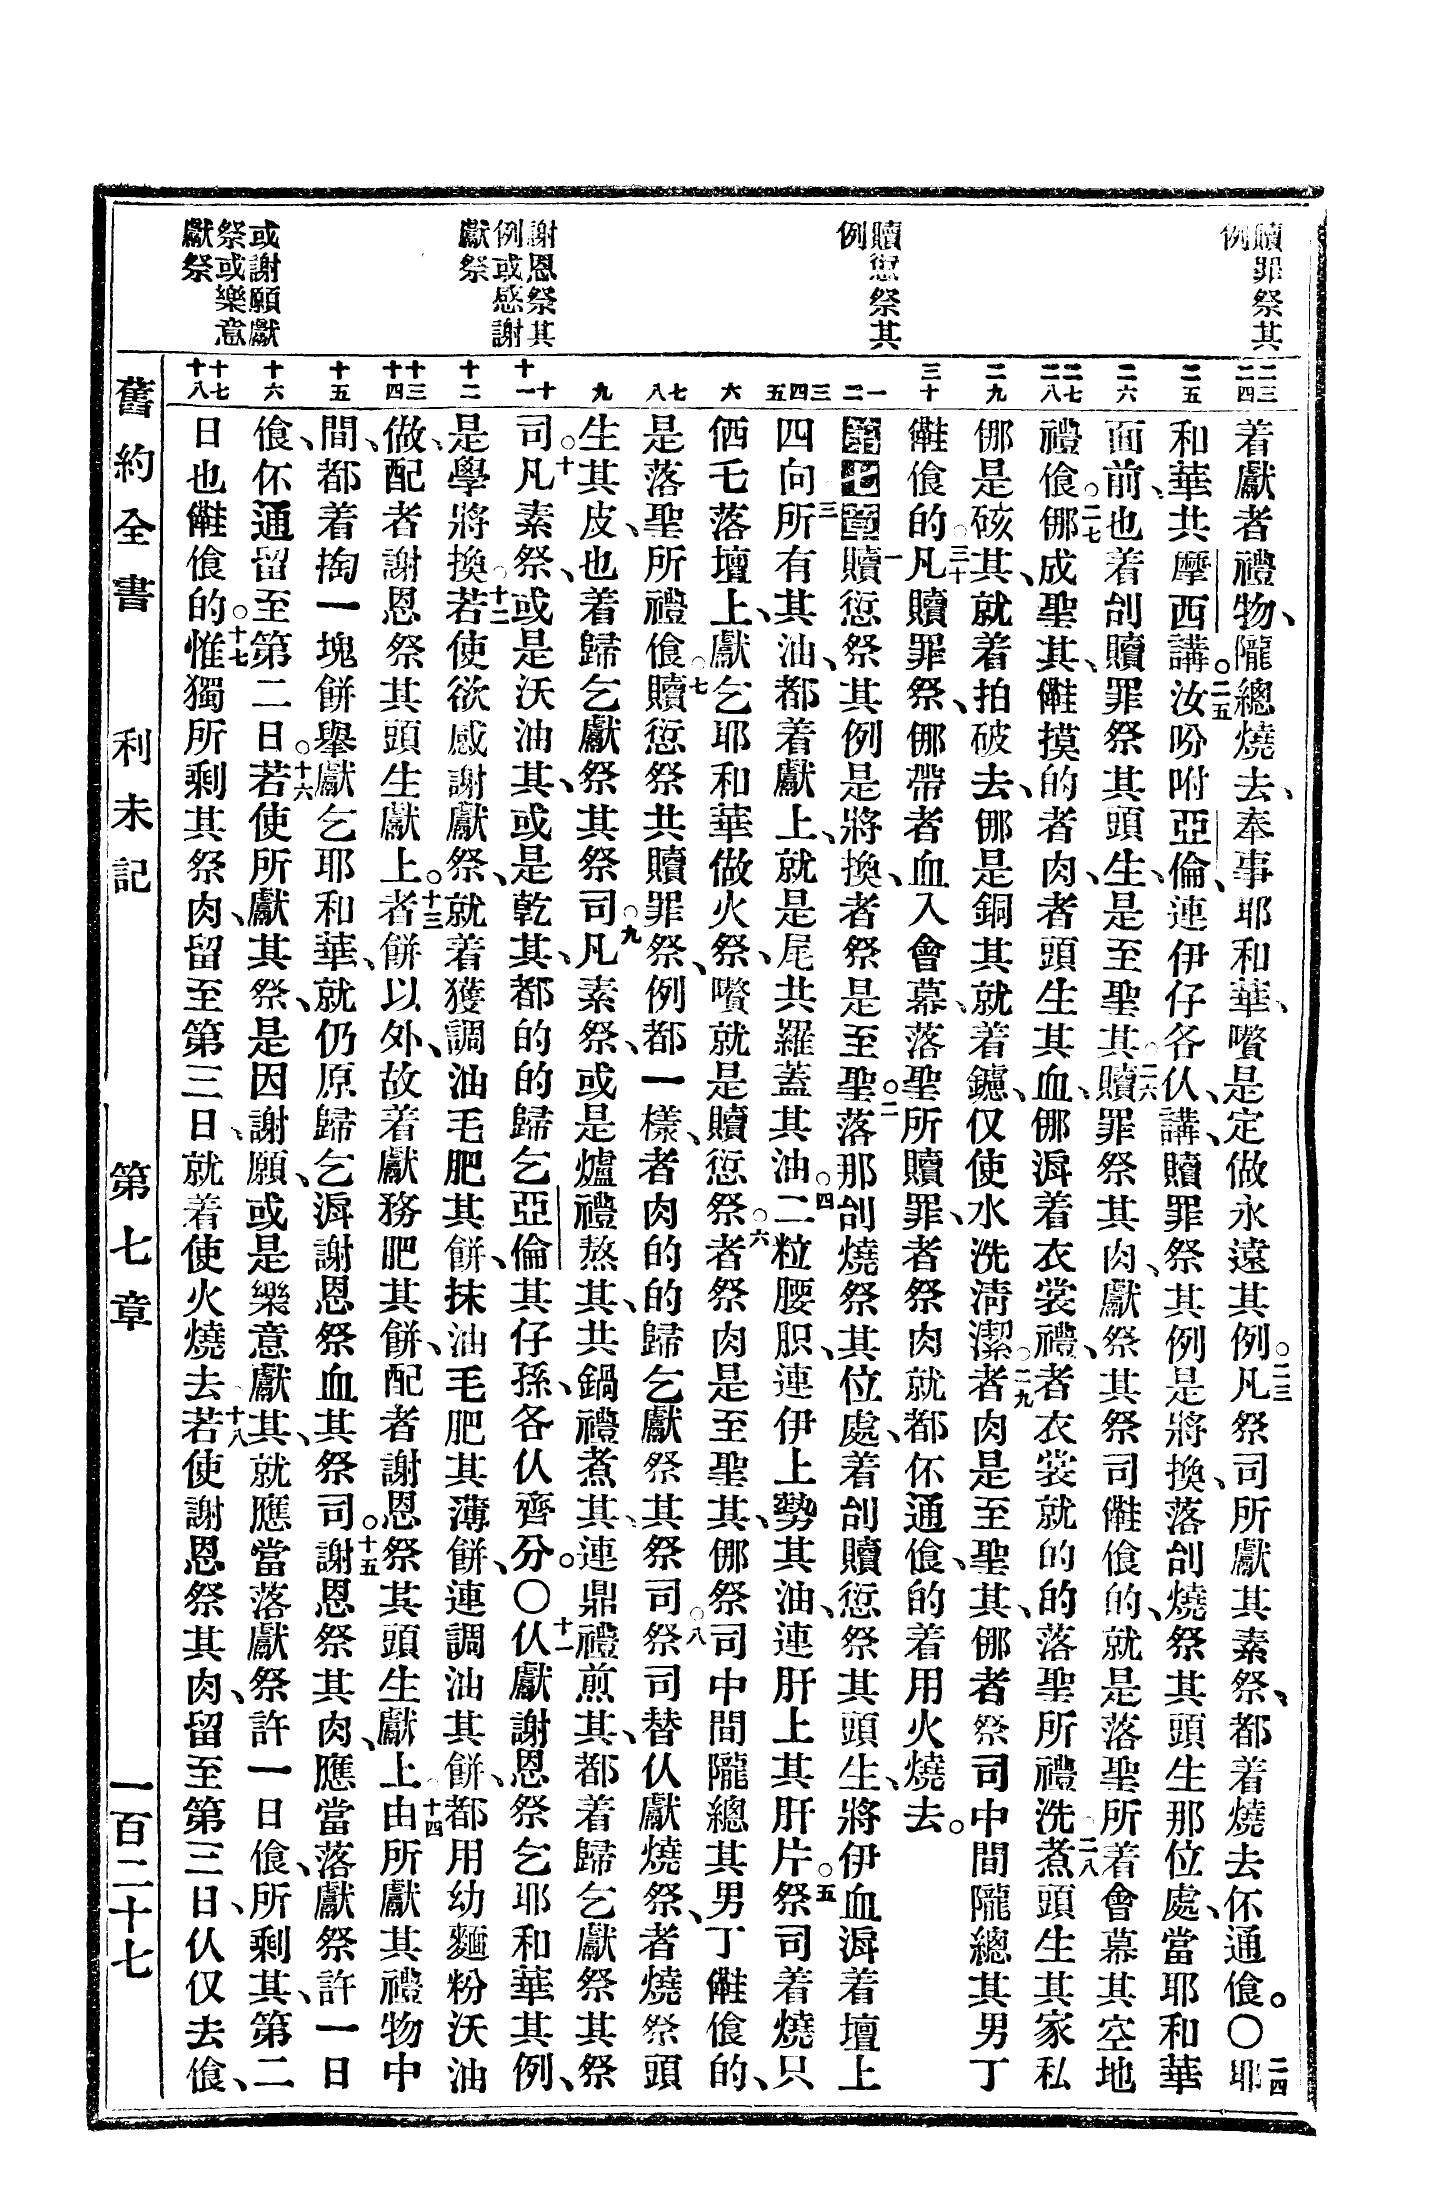 贖罪祭其
例
贖愆祭其
例
謝恩祭其
例或感謝
獻祭
或謝願獻
祭或樂意
獻祭
二三 二四 二五 二六 二七 二八 二九 三十 一 二 三 四 五 六 七 八 九 十 十一 十二 十三 十四 十五 十六 十七 十八
着獻者禮物、隴總燒去、奉事耶和華、囋是定做永遠其例。二三凡祭司所獻其素祭、都着燒去伓通飡。〇二四耶
和華共摩西講。二五汝吩咐亞倫、連伊仔各仈、講、贖罪祭其例是將換、落刣燒祭其頭生那位處、當耶和華
面前、也着刣贖罪祭其頭生、是至聖其。二六贖罪祭其肉、獻祭其祭司飡的、就是落聖所着會幕其空地
禮飡。二七㑚成聖其、摸的者肉、者頭生其血、㑚漘着衣裳禮、者衣裳就的的落聖所禮洗。二八煮頭生其家私
㑚是硋其、就着拍破去、㑚是銅其、就着鑢、仅使水洗淸潔。二九者肉是至聖其、㑚者祭司中間隴總其男丁
飡的。三十凡贖罪祭、㑚帶者血入會幕、落聖所贖罪、者祭肉就都伓通飡、的着用火燒去。
第七章一贖愆祭其例是將換、者祭是至聖。二落那刣燒祭其位處、着刣贖愆祭其頭生、將伊血漘着壇上
四向。三所有其油、都着獻上、就是尾共羅蓋其油。四二粒腰胑、連伊上勢其油、連肝上其肝片。五祭司着燒只
乇落壇上、獻乞耶和華做火祭、囋就是贖愆祭。六者祭肉是至聖其、㑚祭司中間隴總其男丁飡的、
是落聖所禮飡。七贖愆祭共贖罪祭、例都一樣、者肉的的歸乞獻祭其祭司。八祭司替仈獻燒祭、者燒祭頭
生其皮、也着歸乞獻祭其祭司。九凡素祭、或是爐禮熬其、共鍋禮煮其、連鼎禮煎其、都着歸乞獻祭其祭
司。十凡素祭、或是沃油其、或是乾其、都的的歸乞亞倫其仔孫、各仈齊分。〇十一仈獻謝恩祭乞耶和華其例、
是學將換。十二若使欲感謝獻祭、就着獲調油毛肥其餅、抹油毛肥其薄餅、連調油其餅、都用幼麵粉沃油
做、配者謝恩祭其頭生獻上。十三者餅以外、故着獻務肥其餅、配者謝恩祭其頭生獻上。十四由所獻其禮物中
間、都着掏一塊餅舉獻乞耶和華、就仍原歸乞漘謝恩祭血其祭司。十五謝恩祭其肉、應當落獻祭、許一日
飡、伓通留至第二日。十六若使所獻其祭、是因謝願、或是樂意獻其、就應當落獻祭許一日飡、所剩其、第二
日也飡的。十七惟獨所剩其祭肉、留至第三日、就着使火燒去。十八若使謝恩祭其肉、留至第三日、仈仅去飡、
舊約全書 利未記 第七章 一百二十七